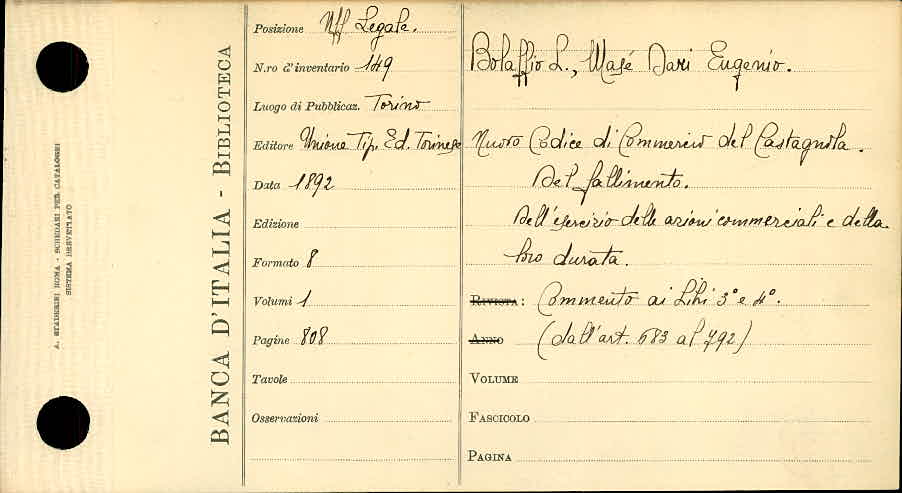 A. STADERINI ROMA - SCHEDARI PER CATALOGHI
SISTEMA BREVETTATO
BANCA D'ITALIA - BIBLIOTECA
Posizione Uff Legale.
N.ro d'inventario 149
Luogo di Pubblicaz. Torino
Editore Unione Tip. Ed. Torinese
Data 1892
Edizione
Formato 8
Volumi 1
Pagine 808
Tavole
Osservazioni
Bolaffio L., Masé Dari Eugenio.
Nuovo Codice di Commercio del Castagnola.
Del fallimento.
Dell'esercizio delle azioni commerciali e della
loro durata.
RIVISTA: Commento ai Libri 3° e 4°.
ANNO (dall'art. 683 al 792)
VOLUME
FASCICOLO
PAGINA